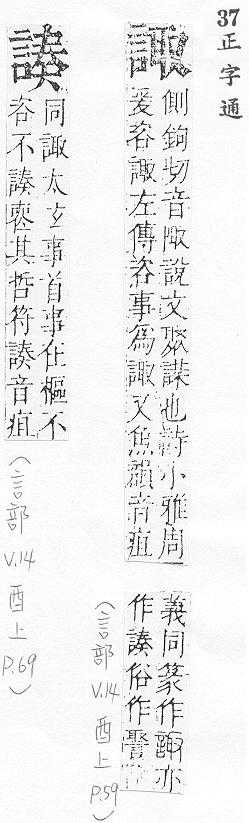 37
正字通
諏
側鉤切音陬說文聚謀也詩小雅周
爰咨諏左傳咨事為諏又魚韻音疽
義同篆作諏亦
作俗作
(言部 V.14 酉上 P.59)
同諏太玄事首事在樞不
咨不喪其哲符音疽
(言部 V.14 酉上 P.69)